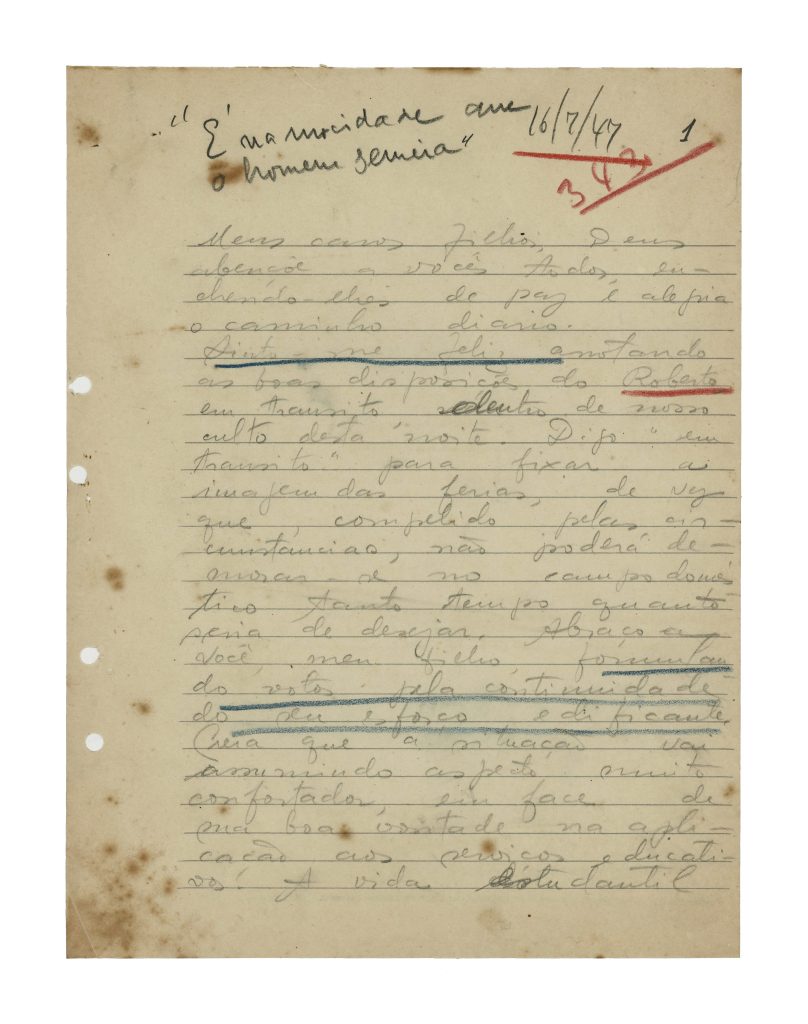 "É na mocidade que
o homem semeia"
16/7/47
1
343
Meus caros filhos, Deus
abençôe a vocês todos, en-
chendo-lhes de paz e alegria
o caminho diario.
Sinto-me feliz anotando
as boas disposições do Roberto,
em transito dentro de nosso
culto desta noite. Digo "em
transito" para fixar a
imagem das ferias, de vez
que, compelido pelas cir-
cunstancias, não poderá de-
morar-se no campo domés
tico tanto tempo quanto
seria de desejar. Abraço a
você, meu filho, formulan
do votos pela continuidade
do seu esforço edificante.
Creia que a situação vai
assumindo aspecto muito
confortador, em face de
sua boa vontade na apli-
cação aos serviços educati-
vos. A vida estudantil